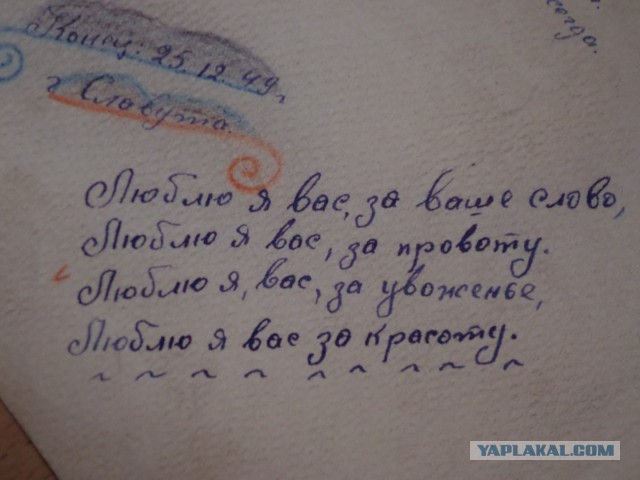 Конец: 25.12.49 г.
г. Славута.
сегда.
Люблю я вас, за ваше слово,
Люблю я вас, за провоту.
Люблю я, вас, за увоженье,
Люблю я вас за красоту.
YAPLAKAL.COM